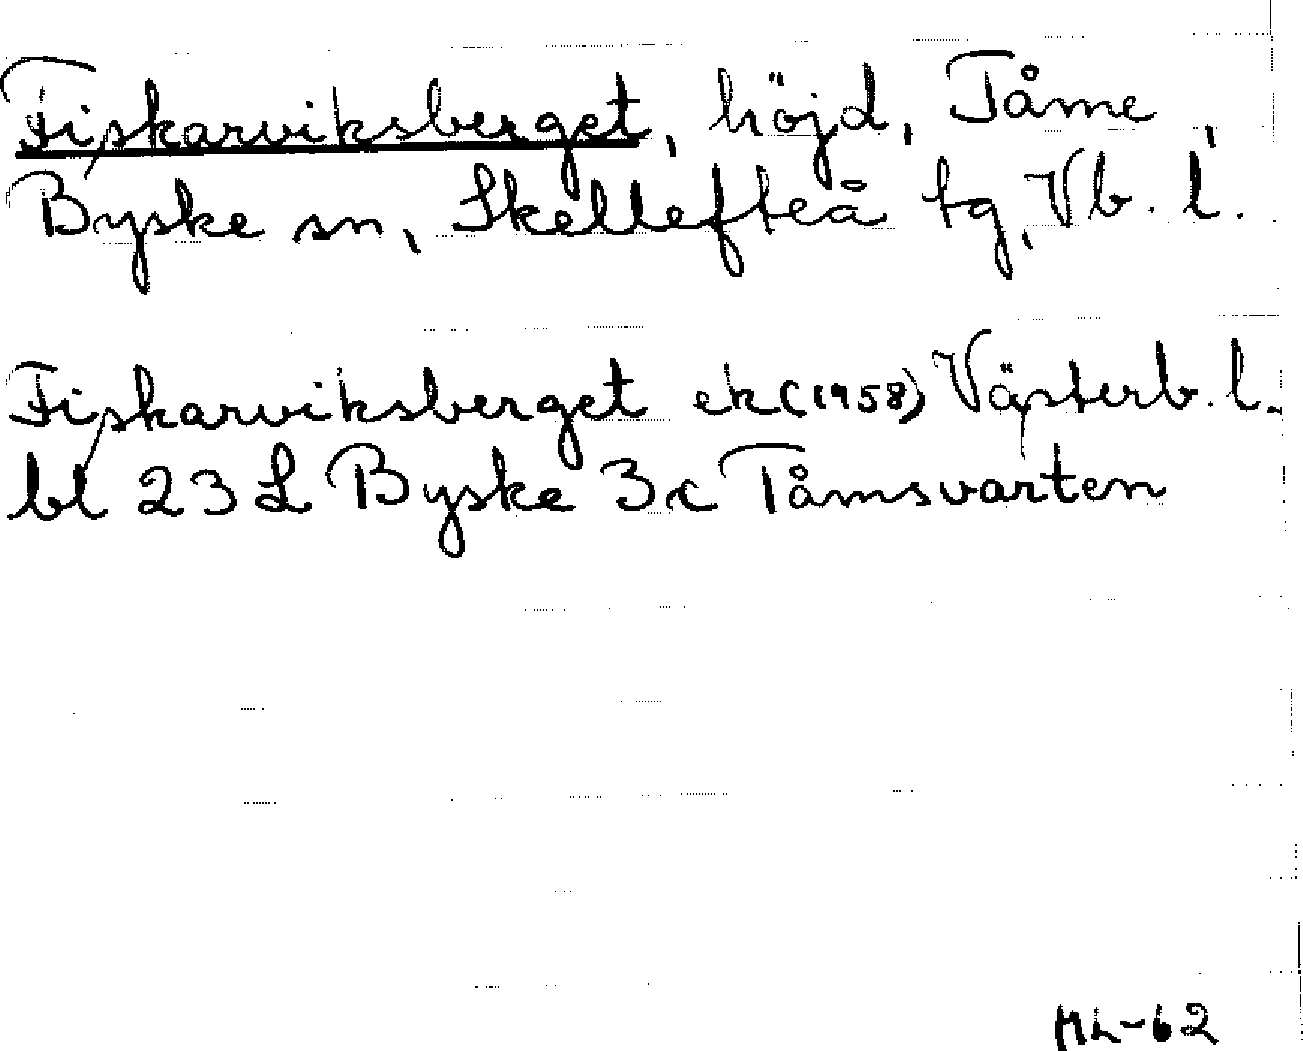 Fiskarviksberget, höjd, Tåme,
Byske sn, Skellefteå tg, Vb. l.
Fiskarviksberget ek (1958) Västerb. l.
bl 23 L Byske 3c Tåmsvarten
ML-62